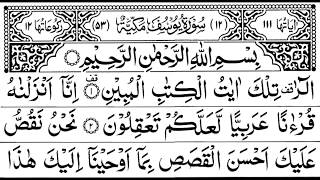 اٰيَاتُهَا ١١١ (١٢) سُوْرَةُ يُوْسُفَ مَكِّيَّةٌ (٥٣) رُكُوْعَاتُهَا ١٢
بِسْمِ اللهِ الرَّحْمٰنِ الرَّحِيْمِ
الٓرٰ ۫ تِلْكَ اٰيٰتُ الْكِتٰبِ الْمُبِيْنِ ۟ اِنَّاۤ اَنْزَلْنٰهُ
قُرْءٰنًا عَرَبِيًّا لَّعَلَّكُمْ تَعْقِلُوْنَ ۟ نَحْنُ نَقُصُّ
عَلَيْكَ اَحْسَنَ الْقَصَصِ بِمَاۤ اَوْحَيْنَاۤ اِلَيْكَ هٰذَا